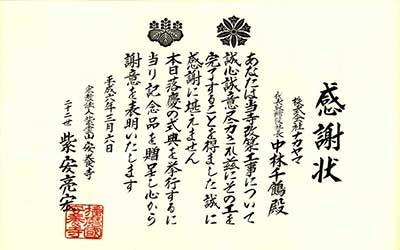 感謝状
株式会社ナカヤマ
代表取締役社長
中林千鶴殿
あなたは当寺改築工事について
誠心誠意尽力され茲にその工を
完了することを得ました誠に
感謝に堪えません
本日落慶の式典を挙行するに
当り記念品を贈呈し心から
謝意を表明いたします
平成六年三月六日
宗教法人
安養寺
二十二世